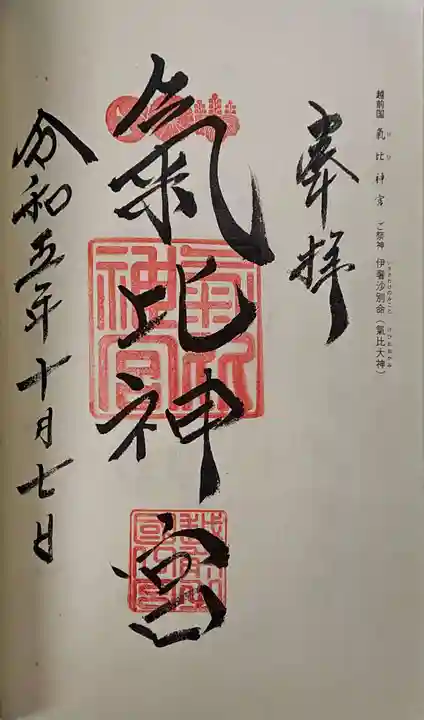 越前国 氣比神宮 ご祭神 伊奢沙別命（氣比大神）
奉拝
氣比神宮
令和五年十月七日
氣比神宮